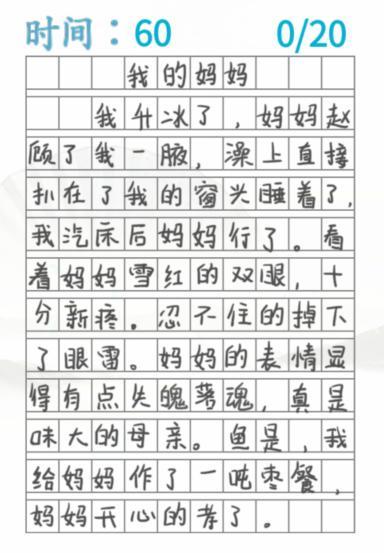 时间：60 0/20
我的妈妈
我升冰了，妈妈赵
顾了我一腋，澡上直接
扒在了我的窗头睡着了，
我汽床后妈妈行了。看
着妈妈雪红的双眼，十
分新疼。忍不住的掉下
了眼雷。妈妈的表情显
得有点失魄落魂，真是
味大的母亲。鱼是，我
给妈妈作了一吨枣餐，
妈妈开心的孝了。